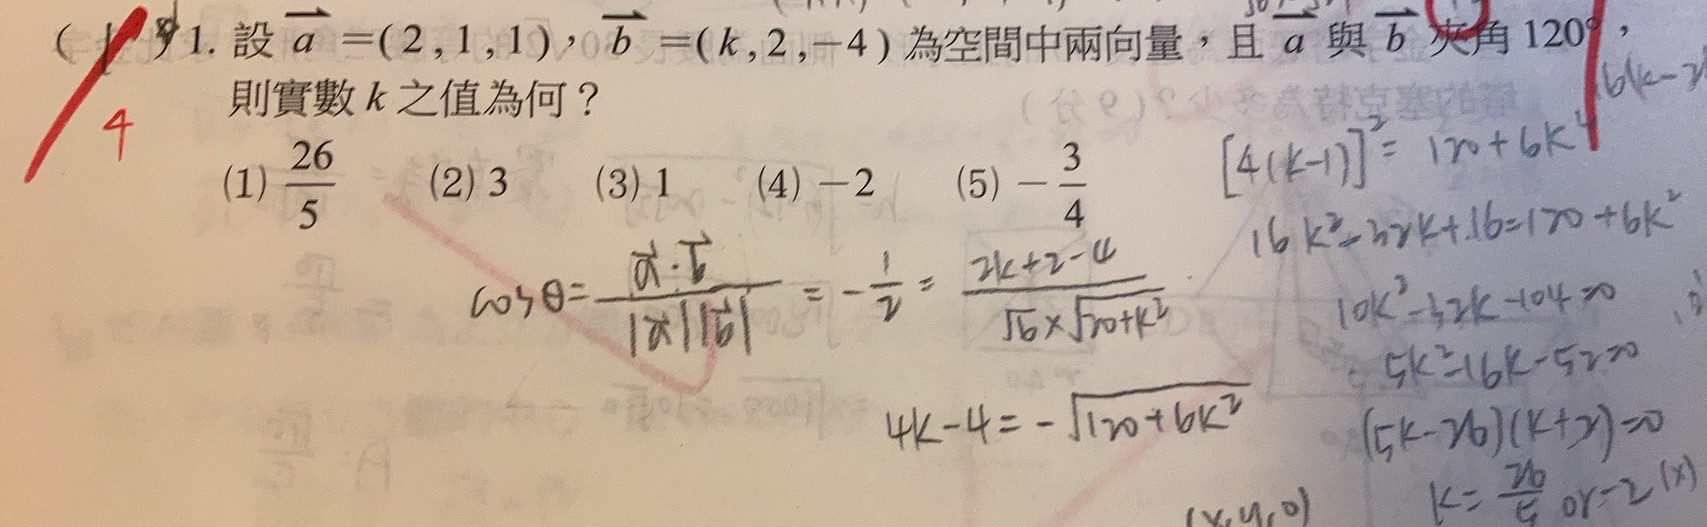 1. 設 a =(2,1,1), b =(k,2,-4)為空間中兩向量,且 a 與 b 夾角120°,
則實數 k 之值為何?
4
(1) 26/5 (2) 3 (3) 1 (4) -2 (5) -3/4
cosθ = a·b / |a||b| = -1/2 = 2k+2-4 / √6×√20+k²
4k-4 = -√120+6k²
[4(k-1)]² = 120+6k²
16k²-32k+16=120+6k²
10k²-32k-104=0
5k²-16k-52=0
(5k-26)(k+2)=0
k= 26/5 or -2 (x)
(x,y,0)